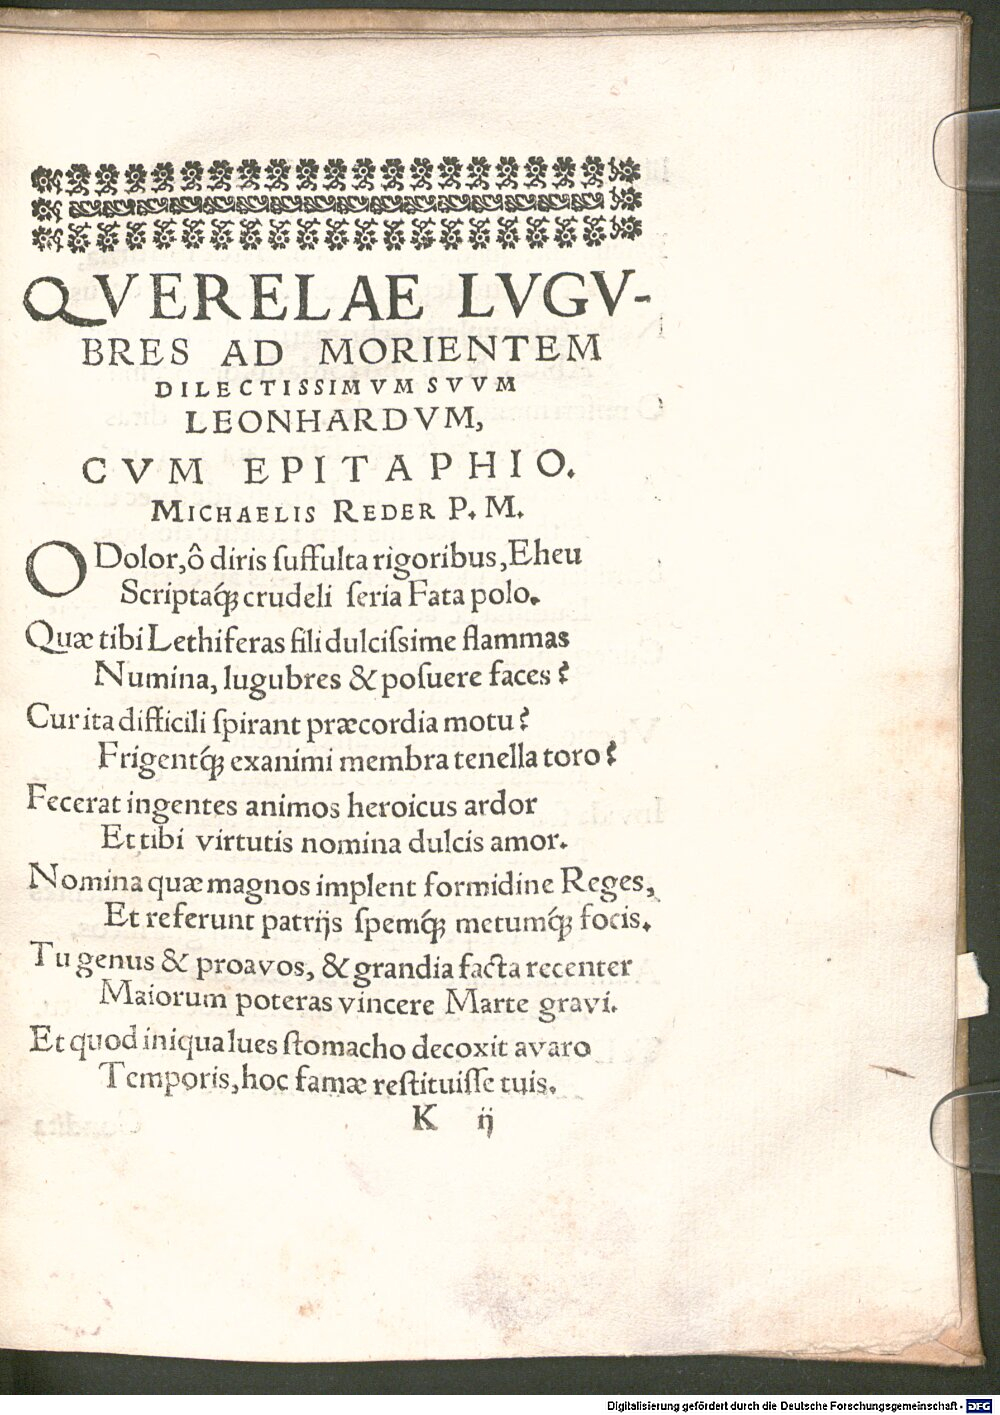 QVERELAE LVGV-
BRES AD MORIENTEM
DILECTISSIMVM SVVM
LEONHARDVM,
CVM EPITAPHIO.
MICHAELIS REDER P. M.
O Dolor, ô diris ſuffulta rigoribus, Eheu
Scriptaq́; crudeli ſeria Fata polo.
Quæ tibi Lethiferas fili dulciſsime flammas
Numina, lugubres & poſuere faces?
Cur ita difficili ſpirant præcordia motu?
Frigentq́; exanimi membra tenella toro?
Fecerat ingentes animos heroicus ardor
Et tibi virtutis nomina dulcis amor.
Nomina quæ magnos implent formidine Reges,
Et referunt patrijs ſpemq́; metumq́; focis.
Tu genus & proavos, & grandia facta recenter
Maiorum poteras vincere Marte gravi.
Et quod iniqua lues ſtomacho decoxit avaro
Temporis, hoc famæ reſtituiſſe tuis.
K ij
Digitalisierung gefördert durch die Deutsche Forschungsgemeinschaft - DFG